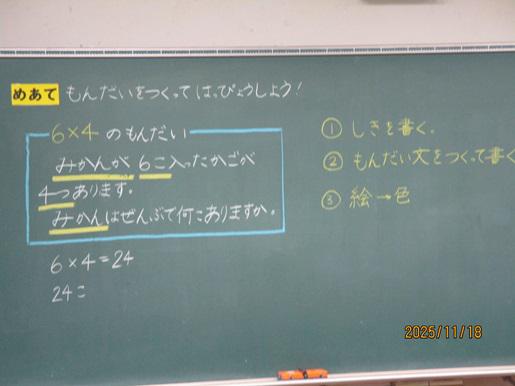 めあて もんだいをつくってはっぴょうしよう!
6×4のもんだい
みかんが6こ入ったかごが
4つあります。
みかんはぜんぶで何こありますか。
6×4=24
24こ
① しきを書く。
② もんだい文をつくって書く
③ 絵→色
2025/11/18